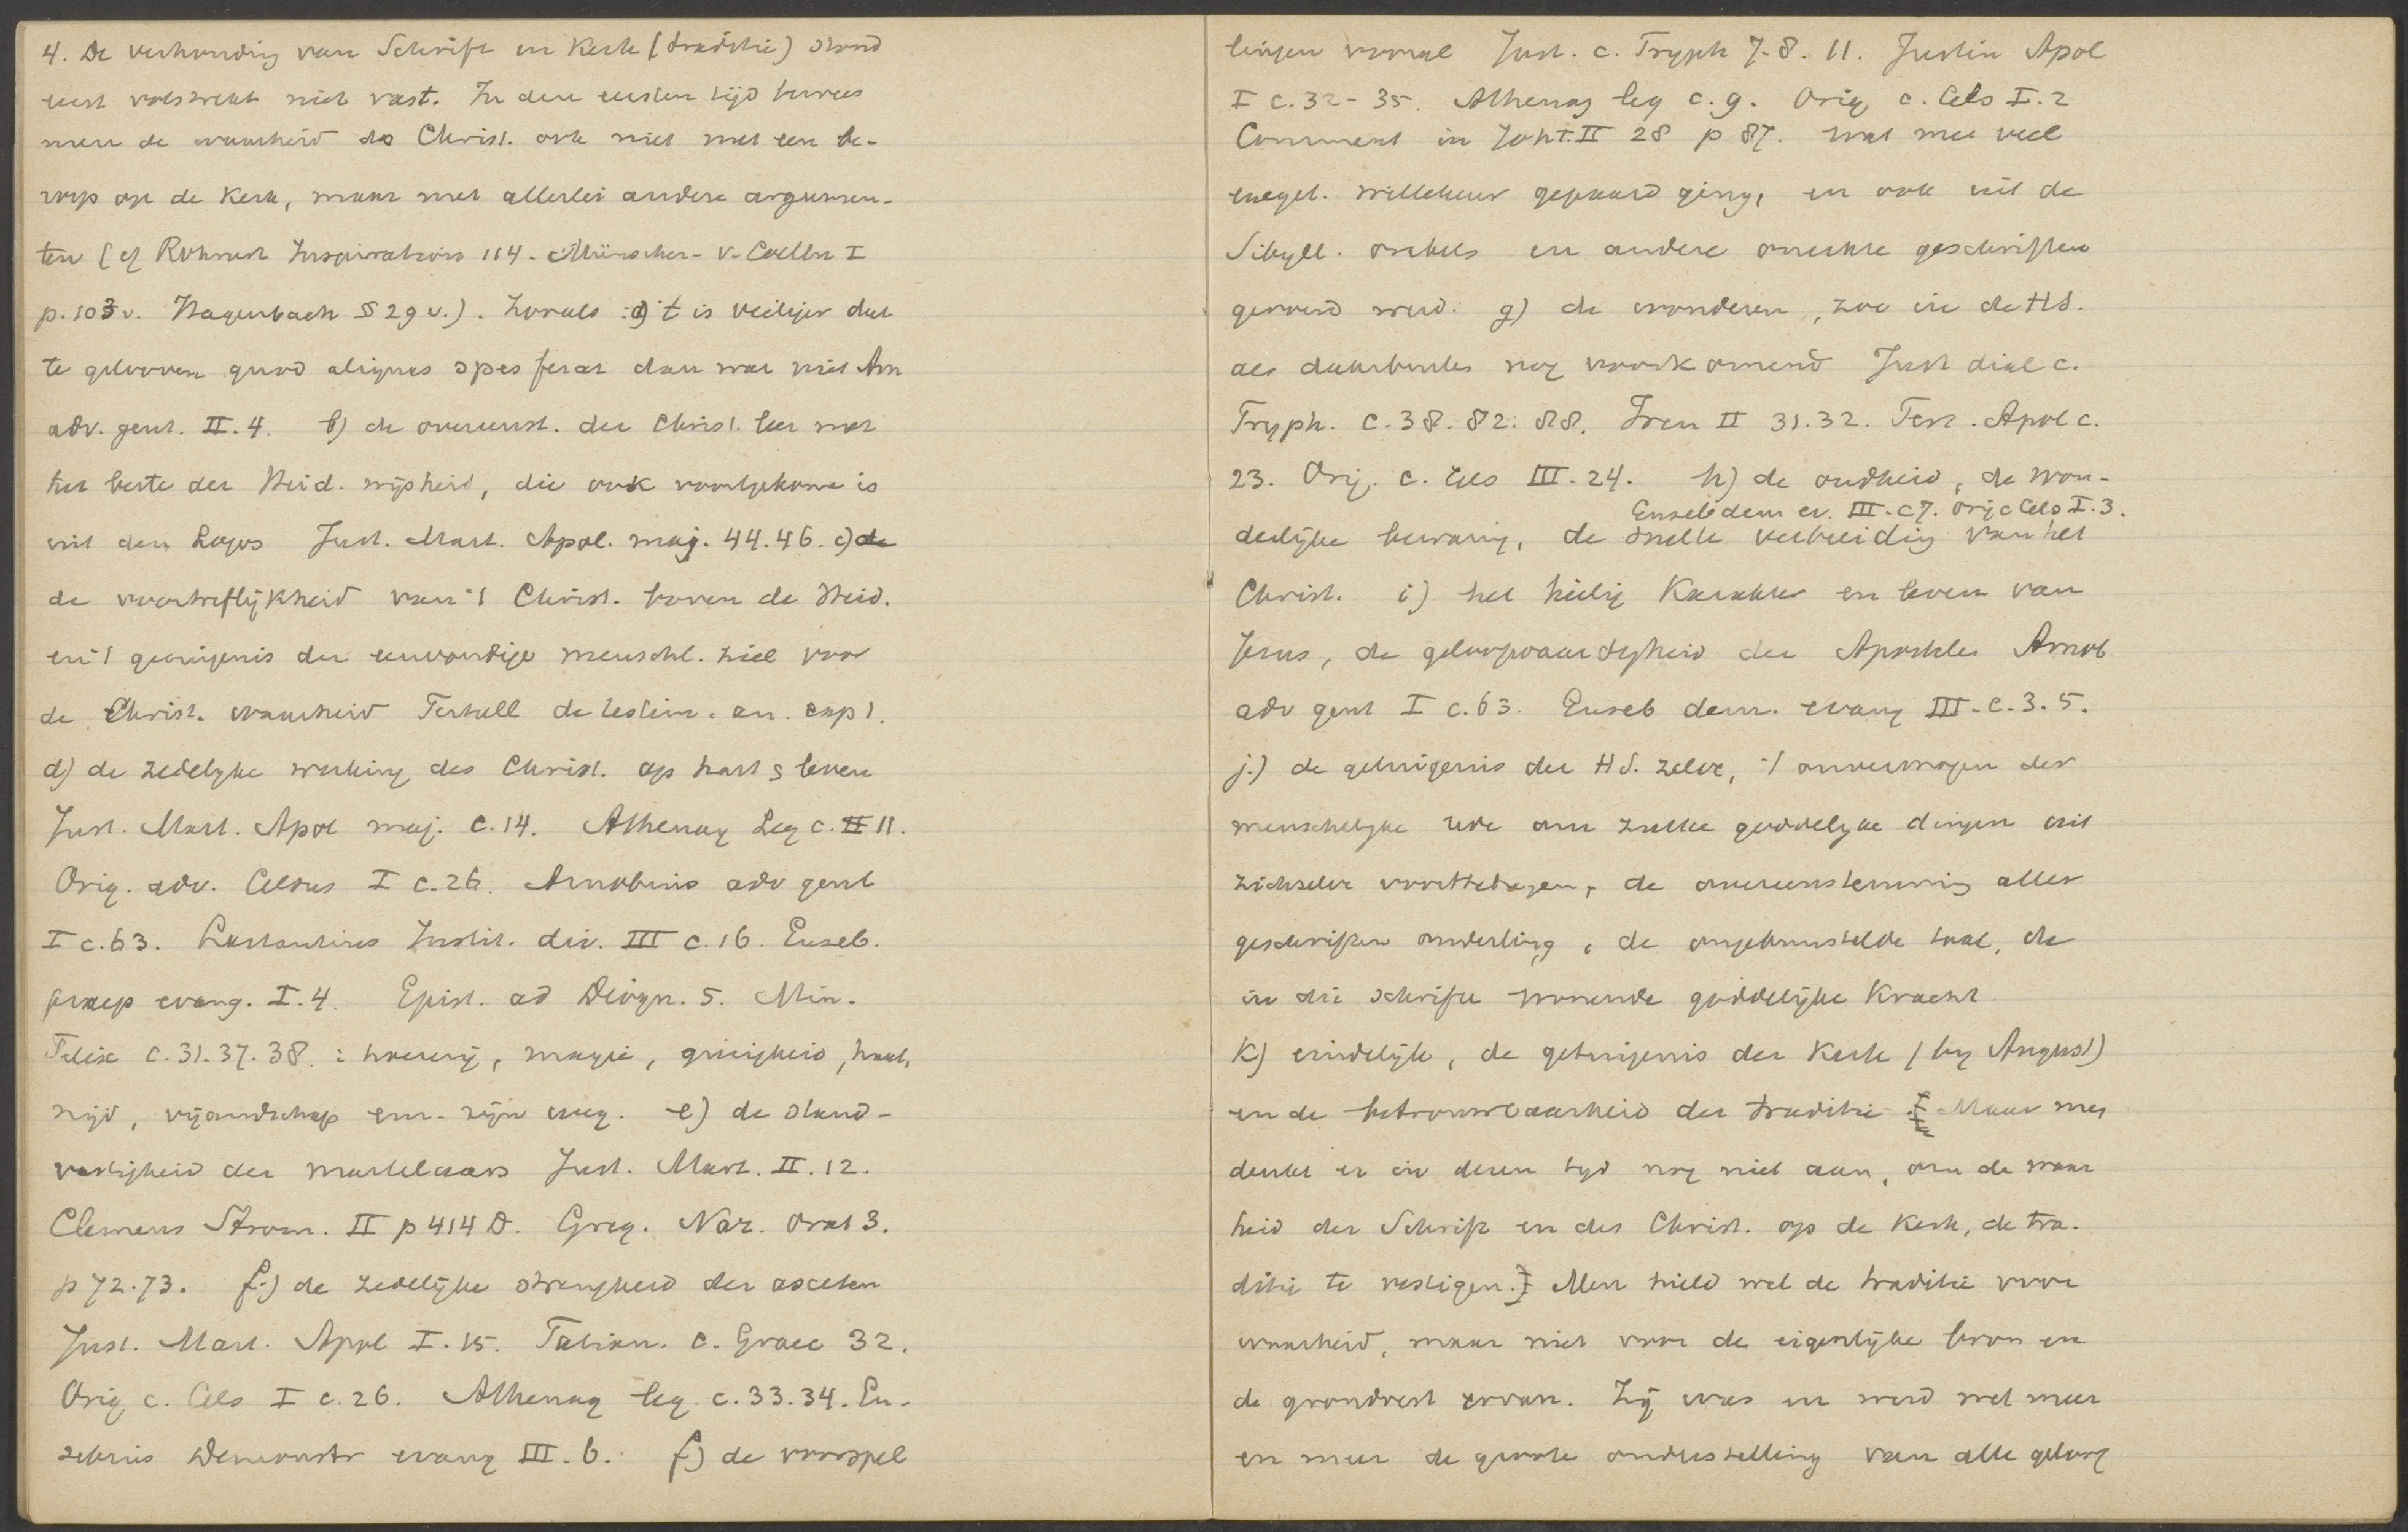 4. De verhouding van Schrift en Kerk (traditie) stond
eerst volstrekt niet vast. In den eersten tijd bewees
men de waarheid des Christ. ook niet met een be-
roep op de Kerk, maar met allerlei andere argumen-
ten (cf Rohnert Inspiration 114. Münscher - v. Coelln I
p. 103 v. Hagenbach § 29 v.). Zooals : a) 't is veiliger dat
te gelooven quod aliquas spes ferat dan wat niet Arn
adv. gent. II. 4. b) de overeenst. der Christ. leer met
het beste der Heid. wijsheid, die ook voortgekome is
uit den Logos Just. Mart. Apol. maj. 44. 46. c) de
de voortreflijkheid van 't Christ. boven de Heid.
en 't getuigenis der eenvoudige menschl. ziel voor
de Christ. waarheid Tertull de testim. an. cap 1.
d) de zedelyke werking des Christ. op hart & leven
Just. Mart. Apol maj. c. 14. Athenag Leg c. II 11.
Orig. adv. Celsus I c. 26. Arnobius adv gent
I c. 63. Lactantius Instit. div. III c. 16. Euseb.
praep evang. I. 4. Epist. ad Diogn. 5. Min.
Felix c. 31. 37. 38. : hoererij, magie, gierigheid, haat,
nijd, vijandschap enz. zijn weg. e) de stand-
vastigheid der martelaars Just. Mart. II. 12.
Clemens Strom. II p 414 D. Greg. Naz. Orat 3.
p 72. 73. f.) de zedelijke strengheid der asceten
Just. Mart. Apol I. 15. Tatian. c. Graec 32.
Orig c. Cels I c. 26. Athenag leg c. 33. 34. Eu-
sebius Demonstr evang III. 6. f) de voorspel
lingen vooral Just. c. Tryph 7. 8. 11. Justin Apol
I c. 32 - 35. Athenag leg c. 9. Orig c. Cels I. 2
Comment in Joh T. II 28 p 87. wat met veel
exeget. willekeur gepaard ging, en ook uit de
Sibyll. orakels en andere onechte geschriften
gevoed werd. g) de wonderen, zoo in de H S.
als daarbuiten nog voorkomend Just dial c.
Tryph. c. 38. 82. 88. Iren II 31. 32. Tert. Apol c.
23. Orig. c. Cels III. 24. h) de oudheid, de won-
Euseb dem ev. III. c 7. Orig c Cels I. 3.
derlijke bewaring, de snelle verbreiding van het
Christ. i) het heilig Karakter en leven van
Jesus, de geloofwaardigheid der Apostelen Arnob
adv gent I c. 63. Euseb dem. evang III. c. 3. 5.
j.) de getuigenis der H S. zelve, 't onvermogen der
menschelyke rede om zulke goddelyke dingen uit
zichzelve voorttebrengen, de overeenstemming aller
geschriften onderling, de ongekunstelde taal, de
in die schriften wonende goddelijke Kracht
K) eindelijk, de getuigenis der Kerk (by August)
en de betrouwbaarheid der traditie. [Maar men
denkt er in dezen tyd nog niet aan, om de waar
heid der Schrift en des Christ. op de Kerk, de tra-
ditie te vestigen.] Men hield wel de traditie voor
waarheid, maar niet voor de eigenlijke bron en
de grondvest ervan. Zij was en werd wel meer
en meer de groote onderstelling van alle geloof